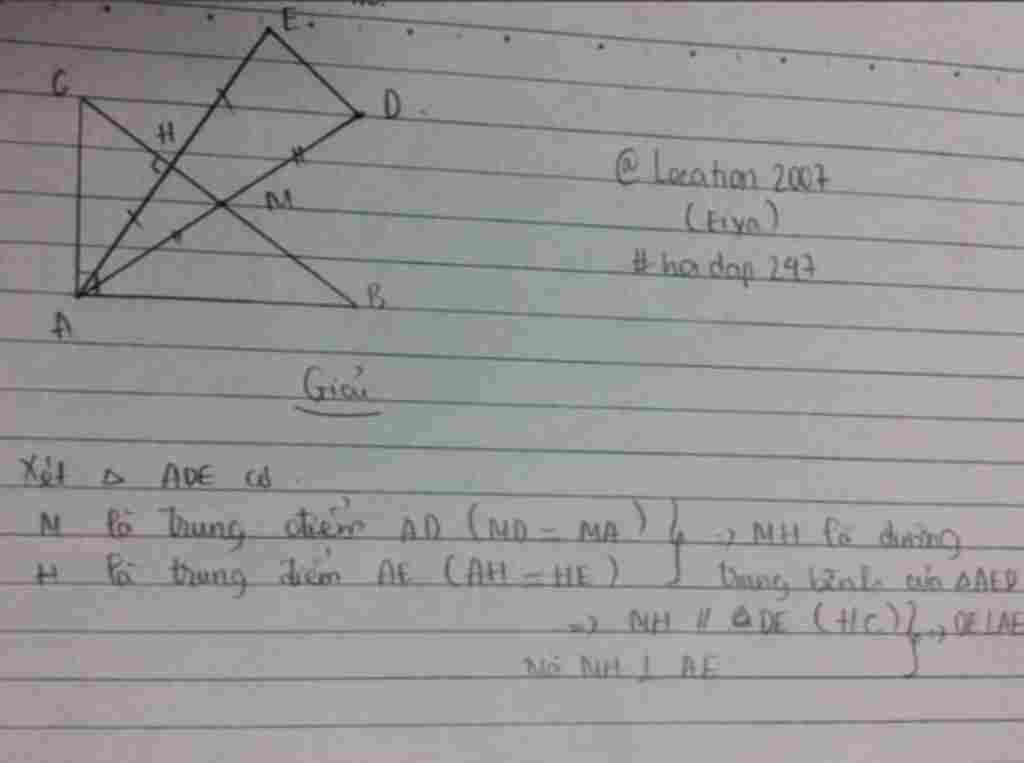 E.
C
D.
H
M
A
B
@ Location 2007
(Eiyn)
# hoi dap 247
Giải
Xét Δ ADE có
M là trung điểm AD (MD = MA) } → MH là đường
H là trung điểm AE (AH = HE) } trung bình của ΔAED
=> MH // DE (t/c) } → DE⊥AE
Mà MH ⊥ AE